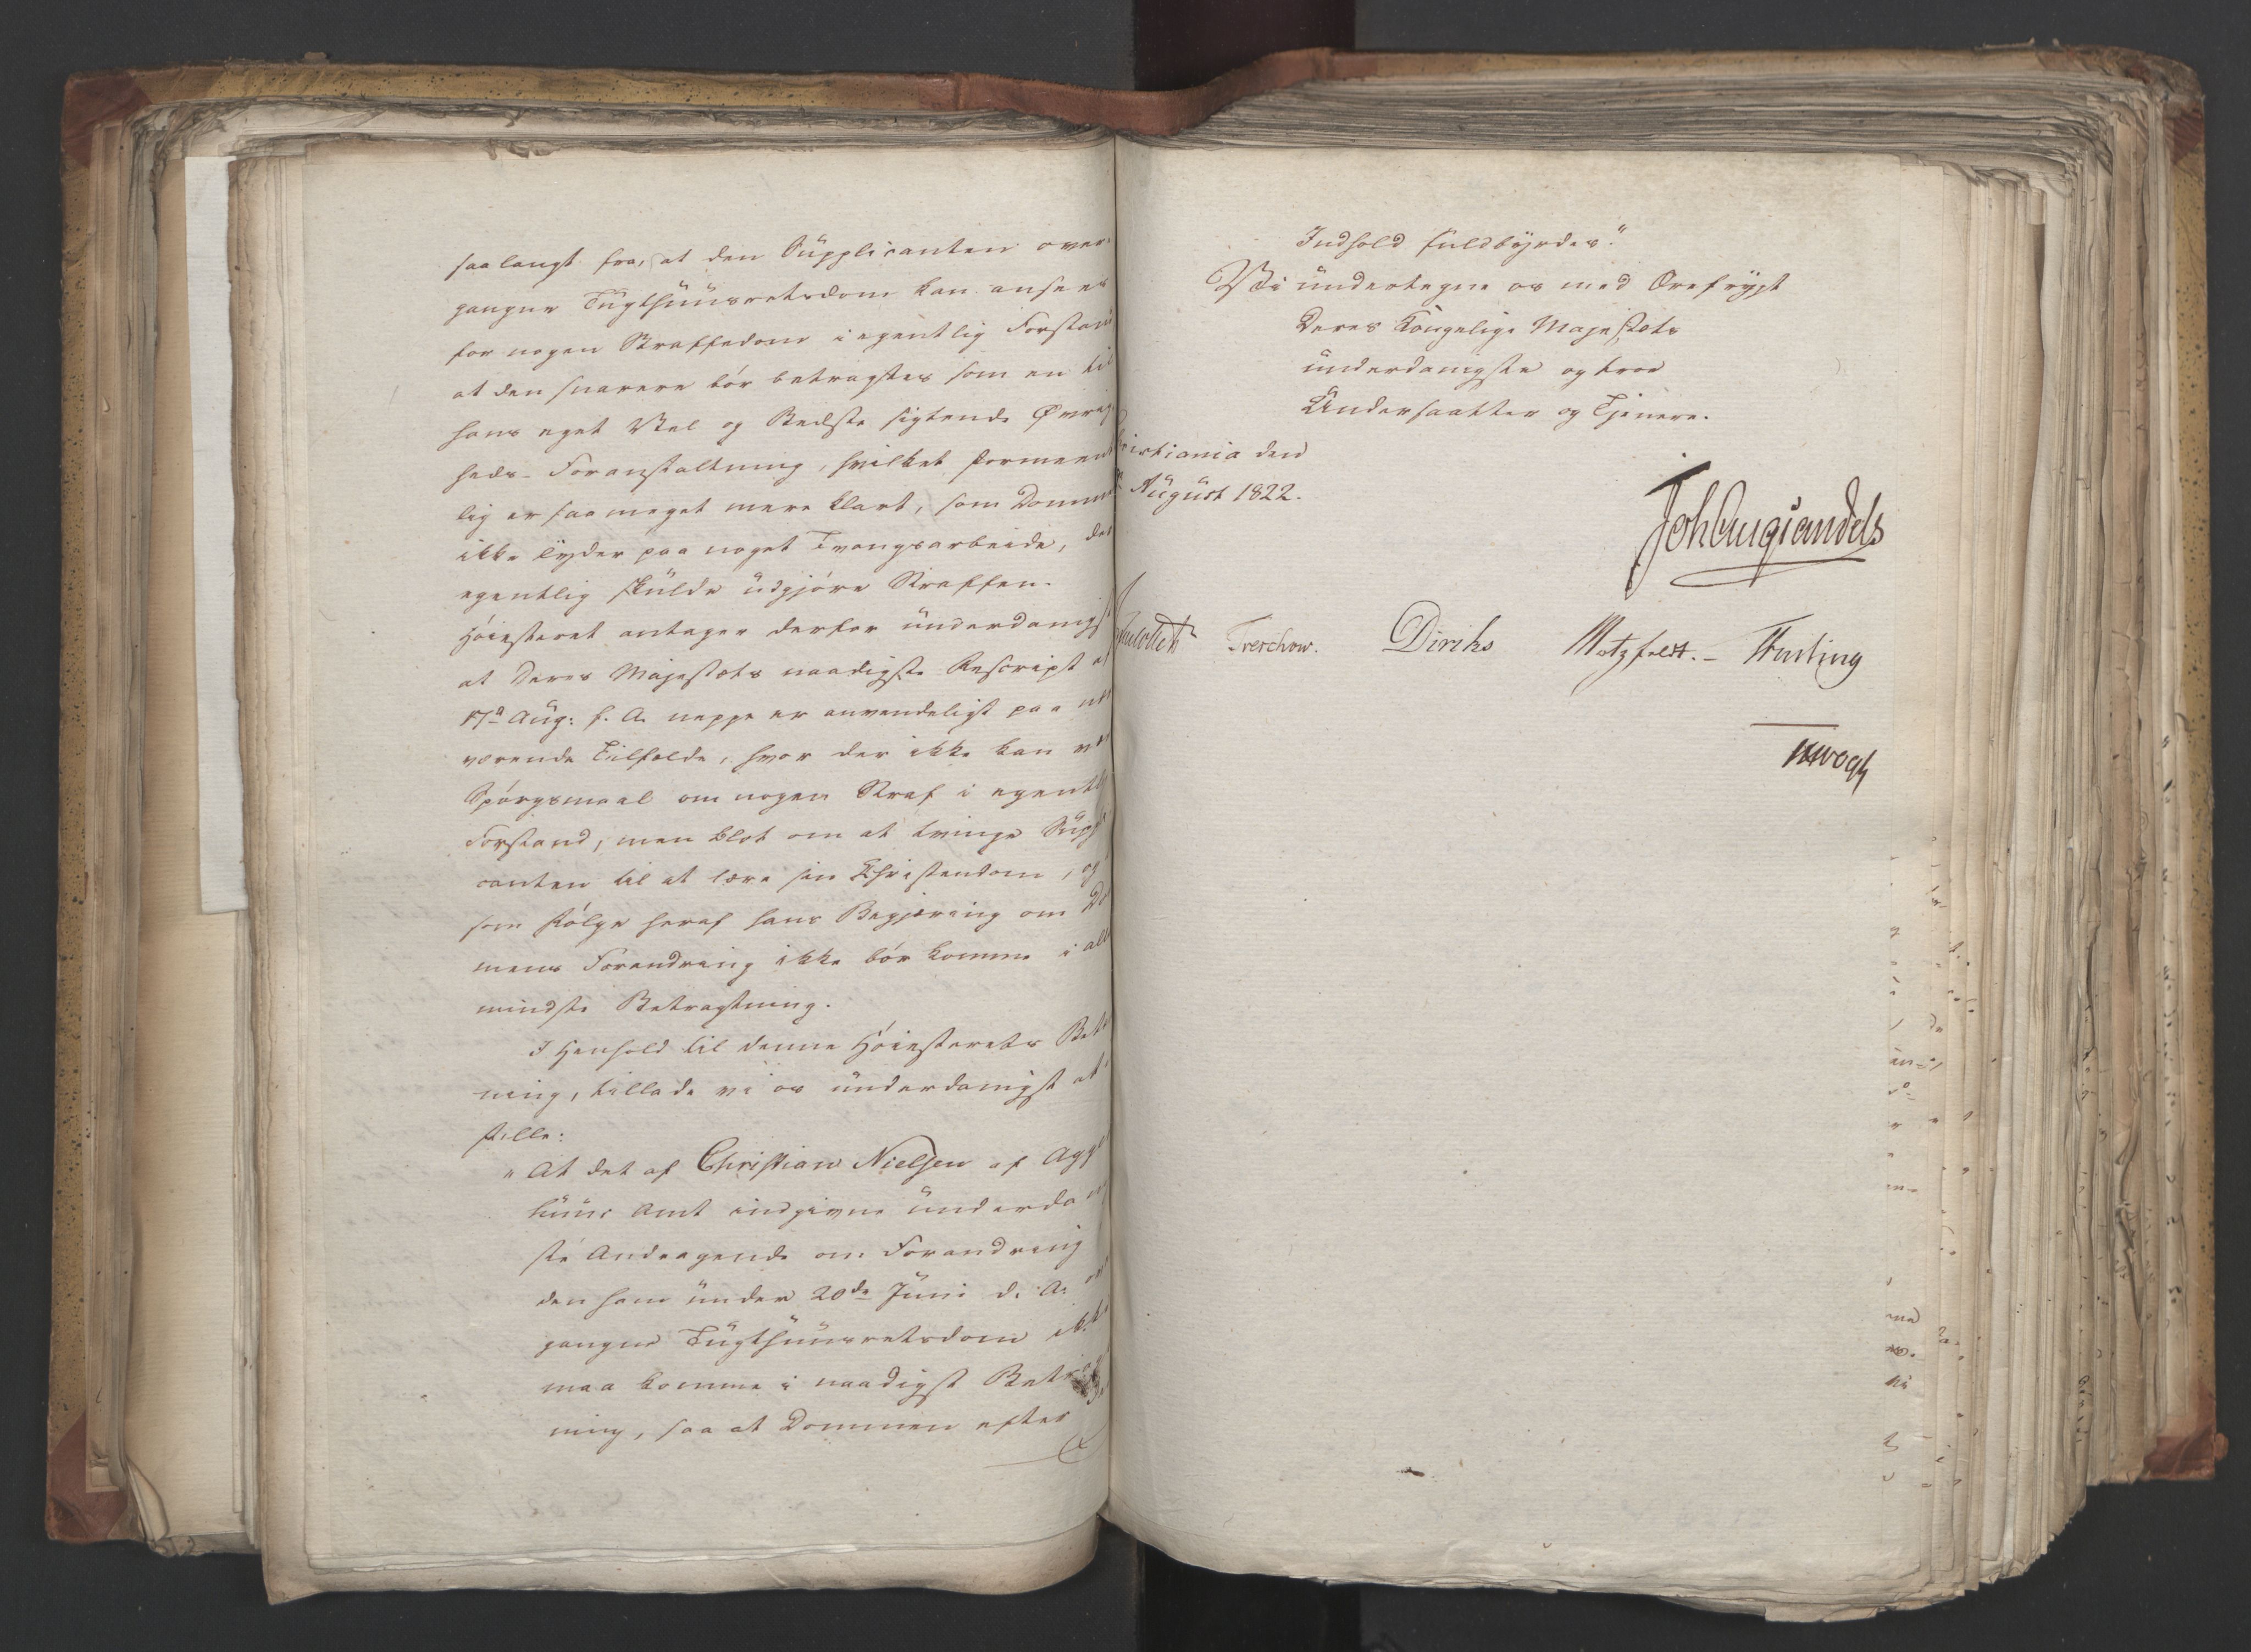 saalangt fra, at den Supplicanten over
gangne Tugthuusretsdom kan ansees
for nogen Straffedom i egentlig Forstan
at den snarere bør betragtes som en til
hans eget Vel og Bedste sigtende Øvrig
heds-Foranstaltning, hvilket formeent
lig er saameget mere klart, som Domm
ikke lyder paa noget Tvangsarbeide, der
egentlig skulde udgjøre Straffen.
Høiesteret antager derfor underdanigst
at Deres Majestæts naadigste Rescript af
17de Aug: f. A. neppe er anvendeligt paa nær
værende Tilfælde, hvor der ikke kan være
Spørgsmaal om nogen Straf i egentl
Forstand, men blot om at tvinge Suppli
canten til at lære sin Christendom, og
som Følge heraf hans Begjæring om Do
mens Forandring ikke bør komme i aller
mindste Betragtning.
I Henhold til denne Høiesterets Betæ
ning, tillade vi os underdanigst at
stille:
"At det af Christian Nielsen af Agger
huus Amt indgivne underdanig
ste Andragende om Forandring
den ham under 20de Juni d. A. over
gangne Tugthuusretsdom ikke
maa komme i naadigst Betragt
ning, saa at Dommen efter
Indhold fuldbyrdes."
Vi undertegne os med Ærefrygt
Deres Kongelige Majestæts
underdanigste og troe
Undersaatter og Tjenere.
Christiania den
August 1822.
Joh Aug Sandels
Treschow.
Diriks
Motzfeldt. - Fasting